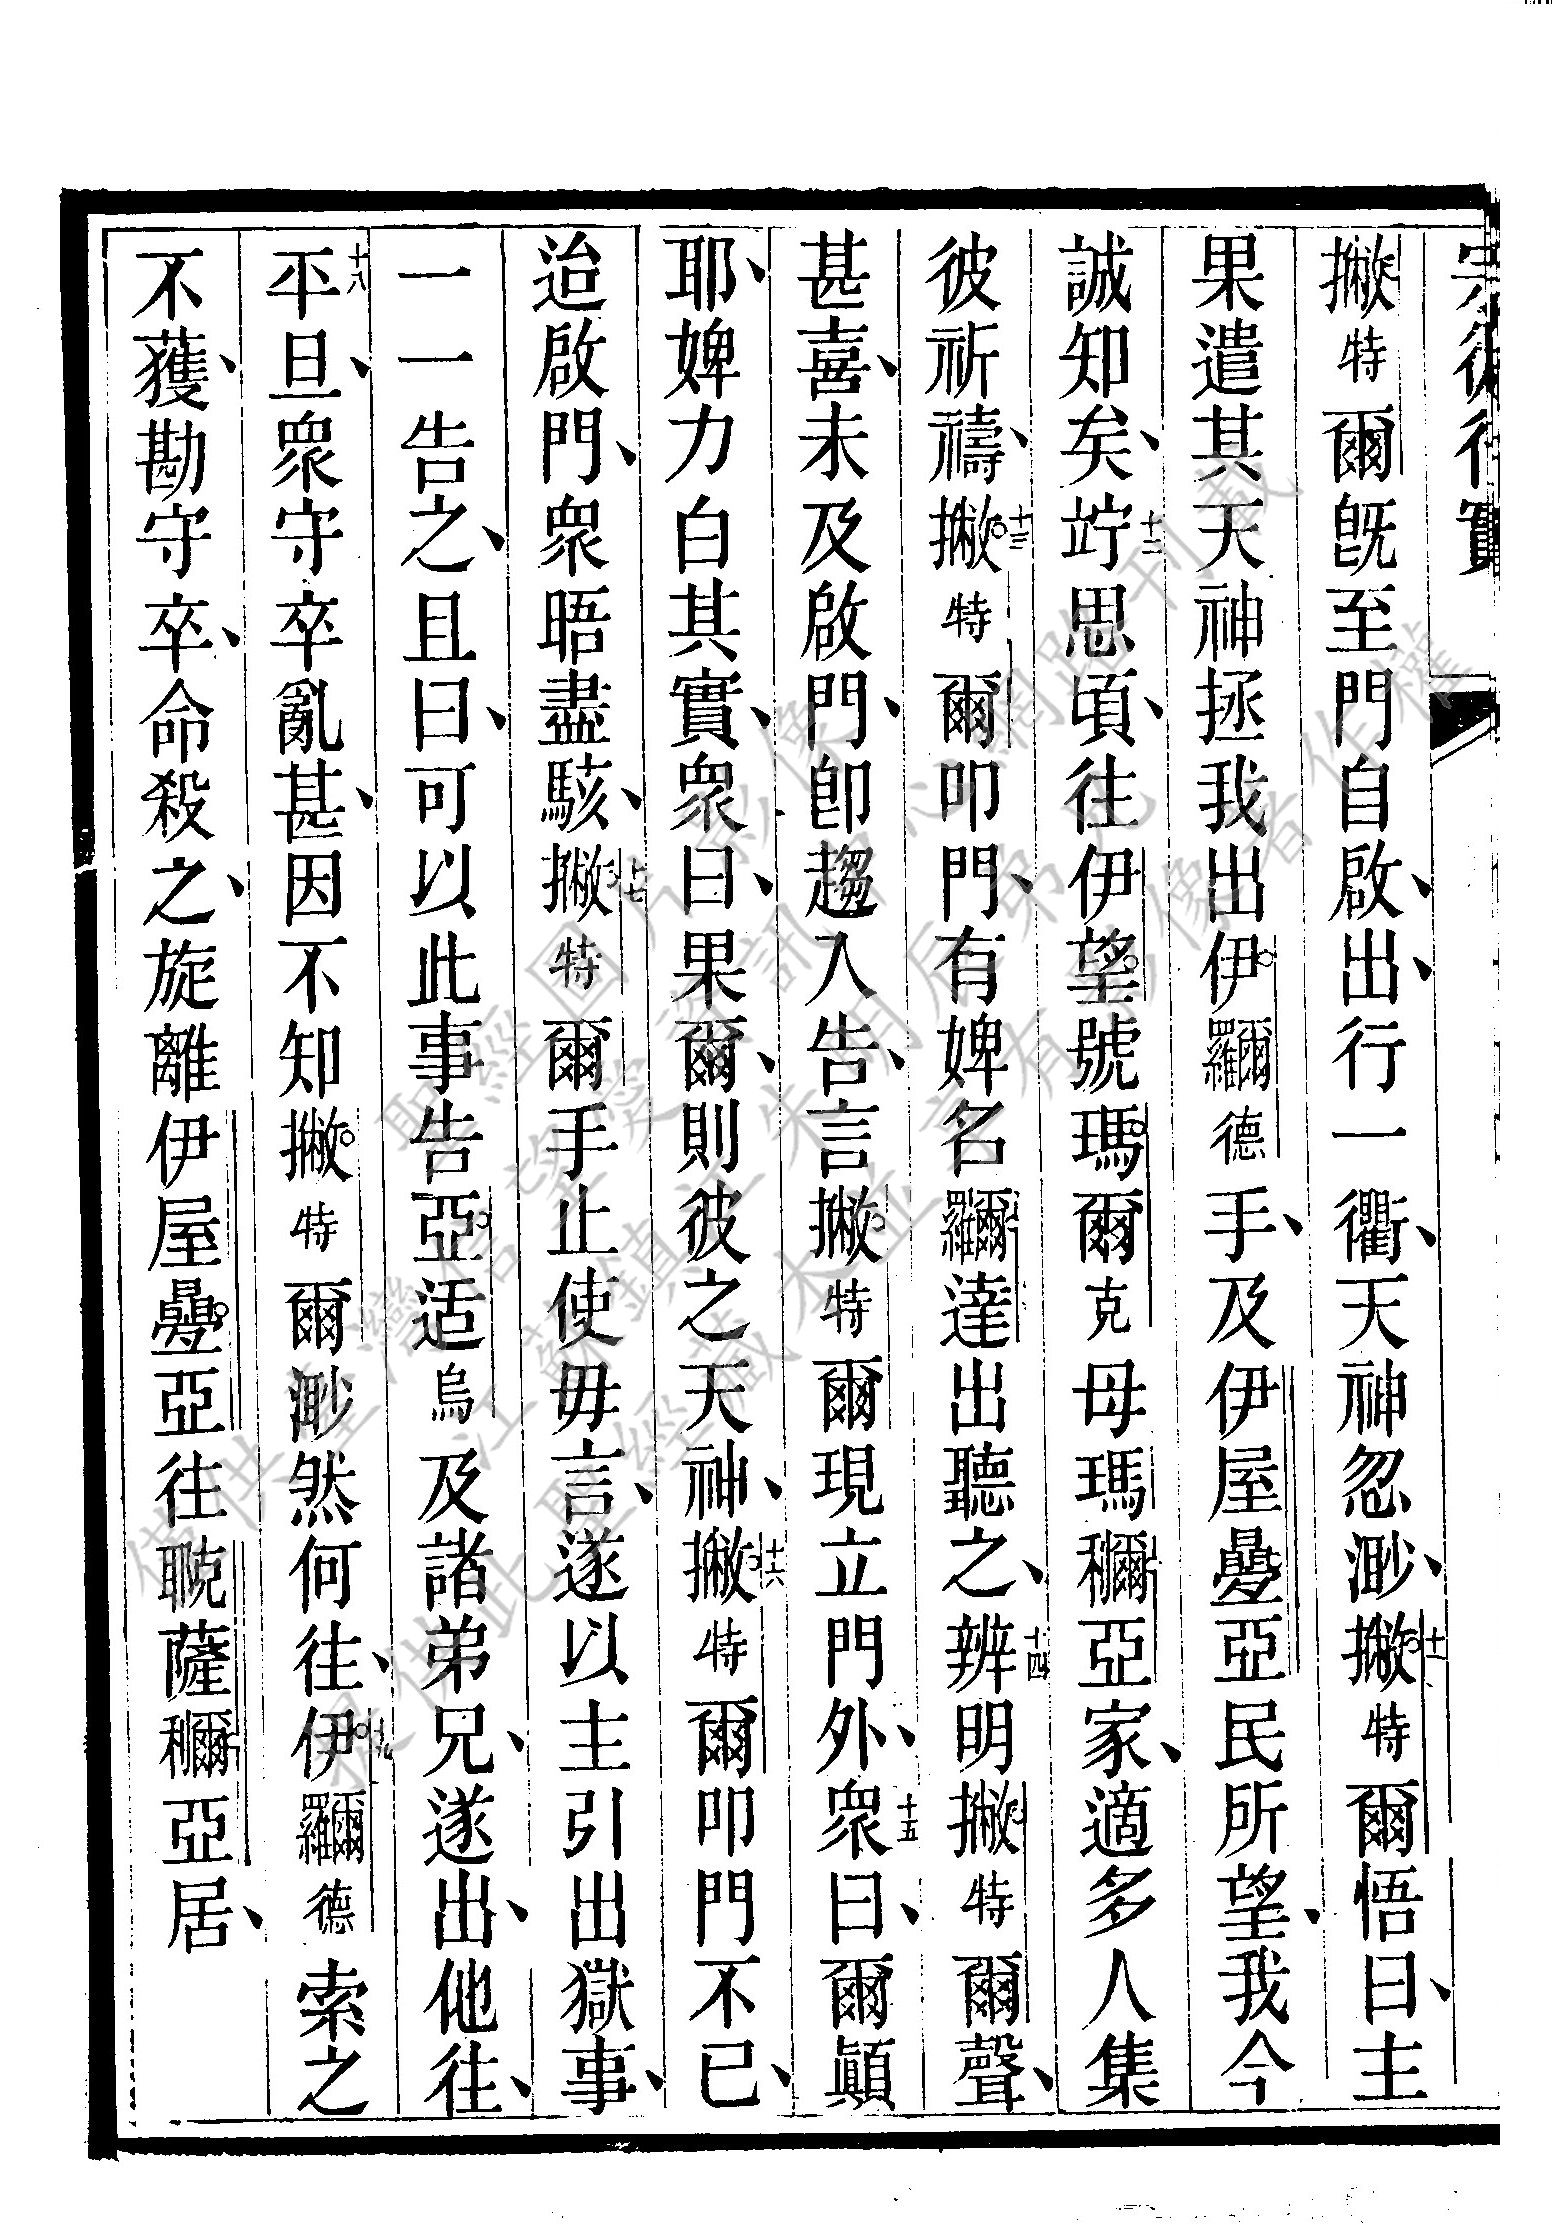 宗徒行實
撇特爾旣至門自啟、出、行一衢、天神忽渺、十一撇特爾悟曰、主
果遣其天神拯我出伊羅爾德手、及伊屋疊亞民所望、我今
誠知矣、十二竚思頃、往伊望號瑪爾克母瑪穪亞家、適多人集
彼祈禱、十三撇特爾叩門、有婢名羅爾達出聽之、十四辨明撇特爾聲、
甚喜、未及啟門、卽趨入告、言撇特爾現立門外、十五衆曰、爾顚
耶、婢力白其實、衆曰、果爾、則彼之天神、十六撇特爾叩門不已、
迨啟門、衆晤盡駭、十七撇特爾手止使毋言、遂以主引出獄事、
一一告之、且曰、可以此事告亞适烏及諸弟兄、遂出、他往、
十八平旦、衆守卒亂甚、因不知撇特爾渺然何往、十九伊羅爾德索之
不獲、勘守卒、命殺之、旋離伊屋疊亞往聣薩穪亞居、